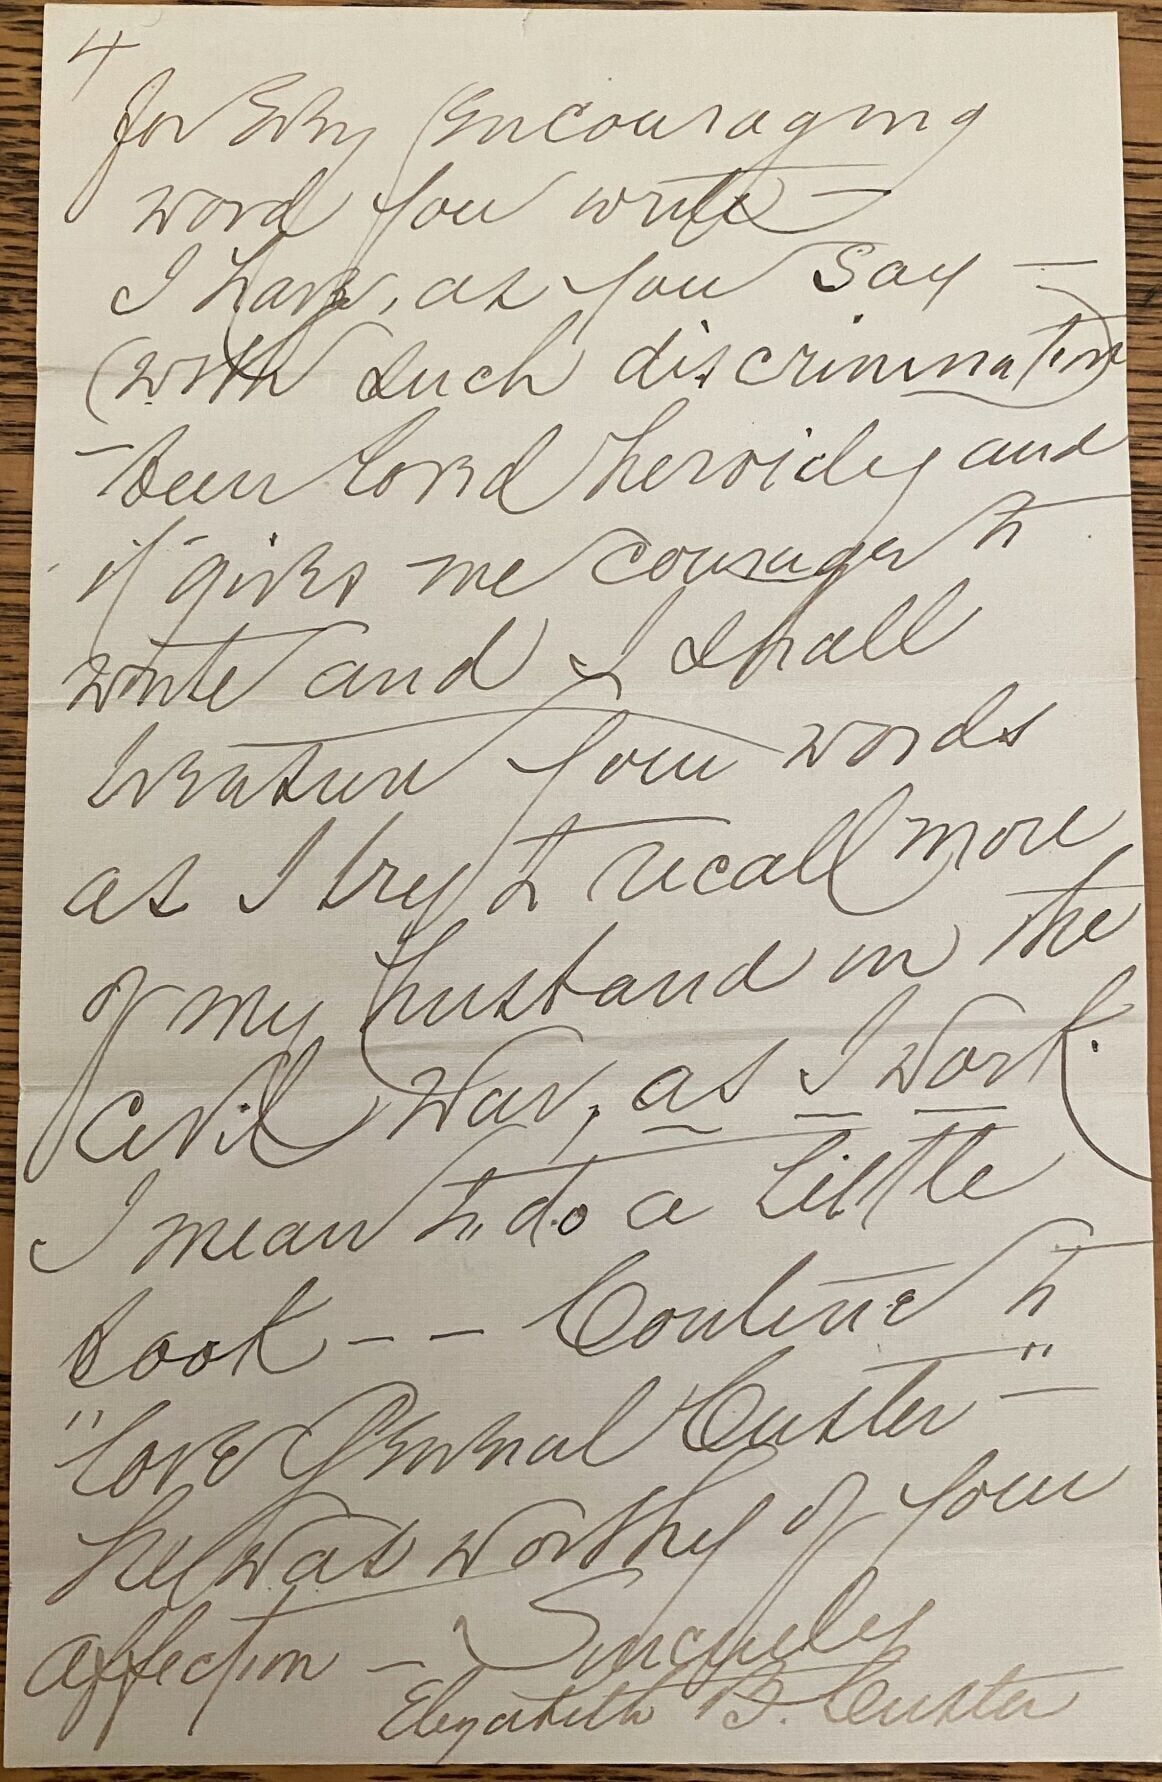 4
for every encouraging
word you write —
I have, as you say —
(with such discrimination)
— been loved heroicly and
it gives me courage to
write and I shall
treasure your words
as I try to recall more
of my husband in the
Civil War, as I work.
I mean to do a little
book — — Continue to
"love General Custer" —
he was worthy of your
affection — Sincerely
Elizabeth B. Custer